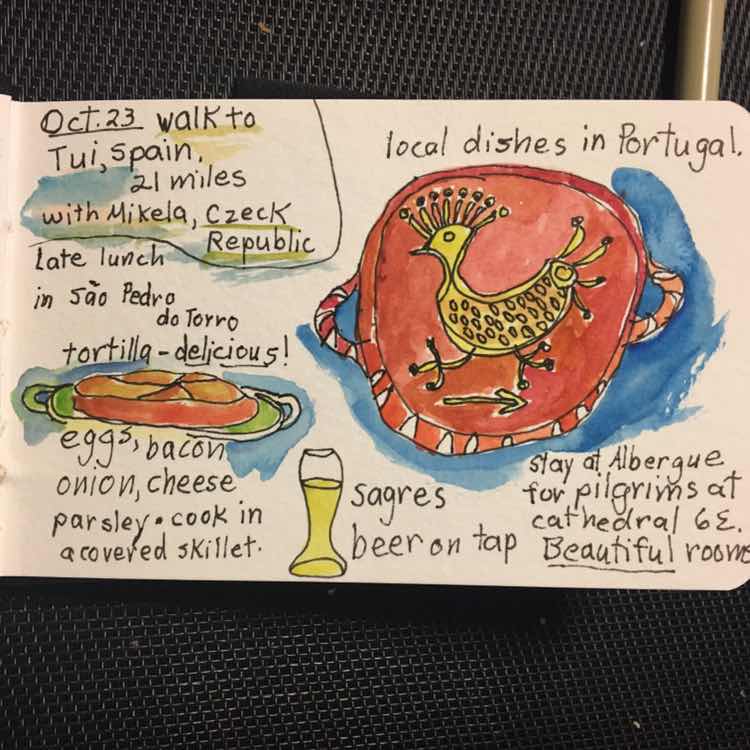 Oct.23 walk to
Tui, Spain.
21 miles
with Mikela, Czeck
Republic
late lunch
in São Pedro
do Torro
tortilla - delicious!
eggs, bacon
onion, cheese
parsley. cook in
a covered skillet.
local dishes in Portugal.
sagres
beer on tap
stay at Albergue
for pilgrims at
cathedral 6€.
Beautiful rooms